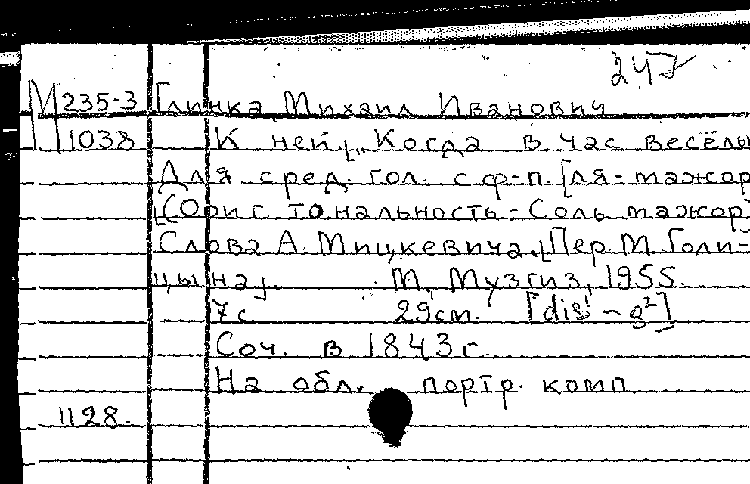 247
М 235-3 Глинка, Михаил Иванович
1038 К ней. [„Когда в час весёлы
Для сред. гол. с ф-п. [ля-мажор
[Ориг. тональность - Соль мажор]
Слова А. Мицкевича. [Пер. М. Голи-
цына]. М., Музгиз, 1955.
7с 29см. [dis¹ - g²]
Соч. в 1843г
На обл. портр. комп
1128.